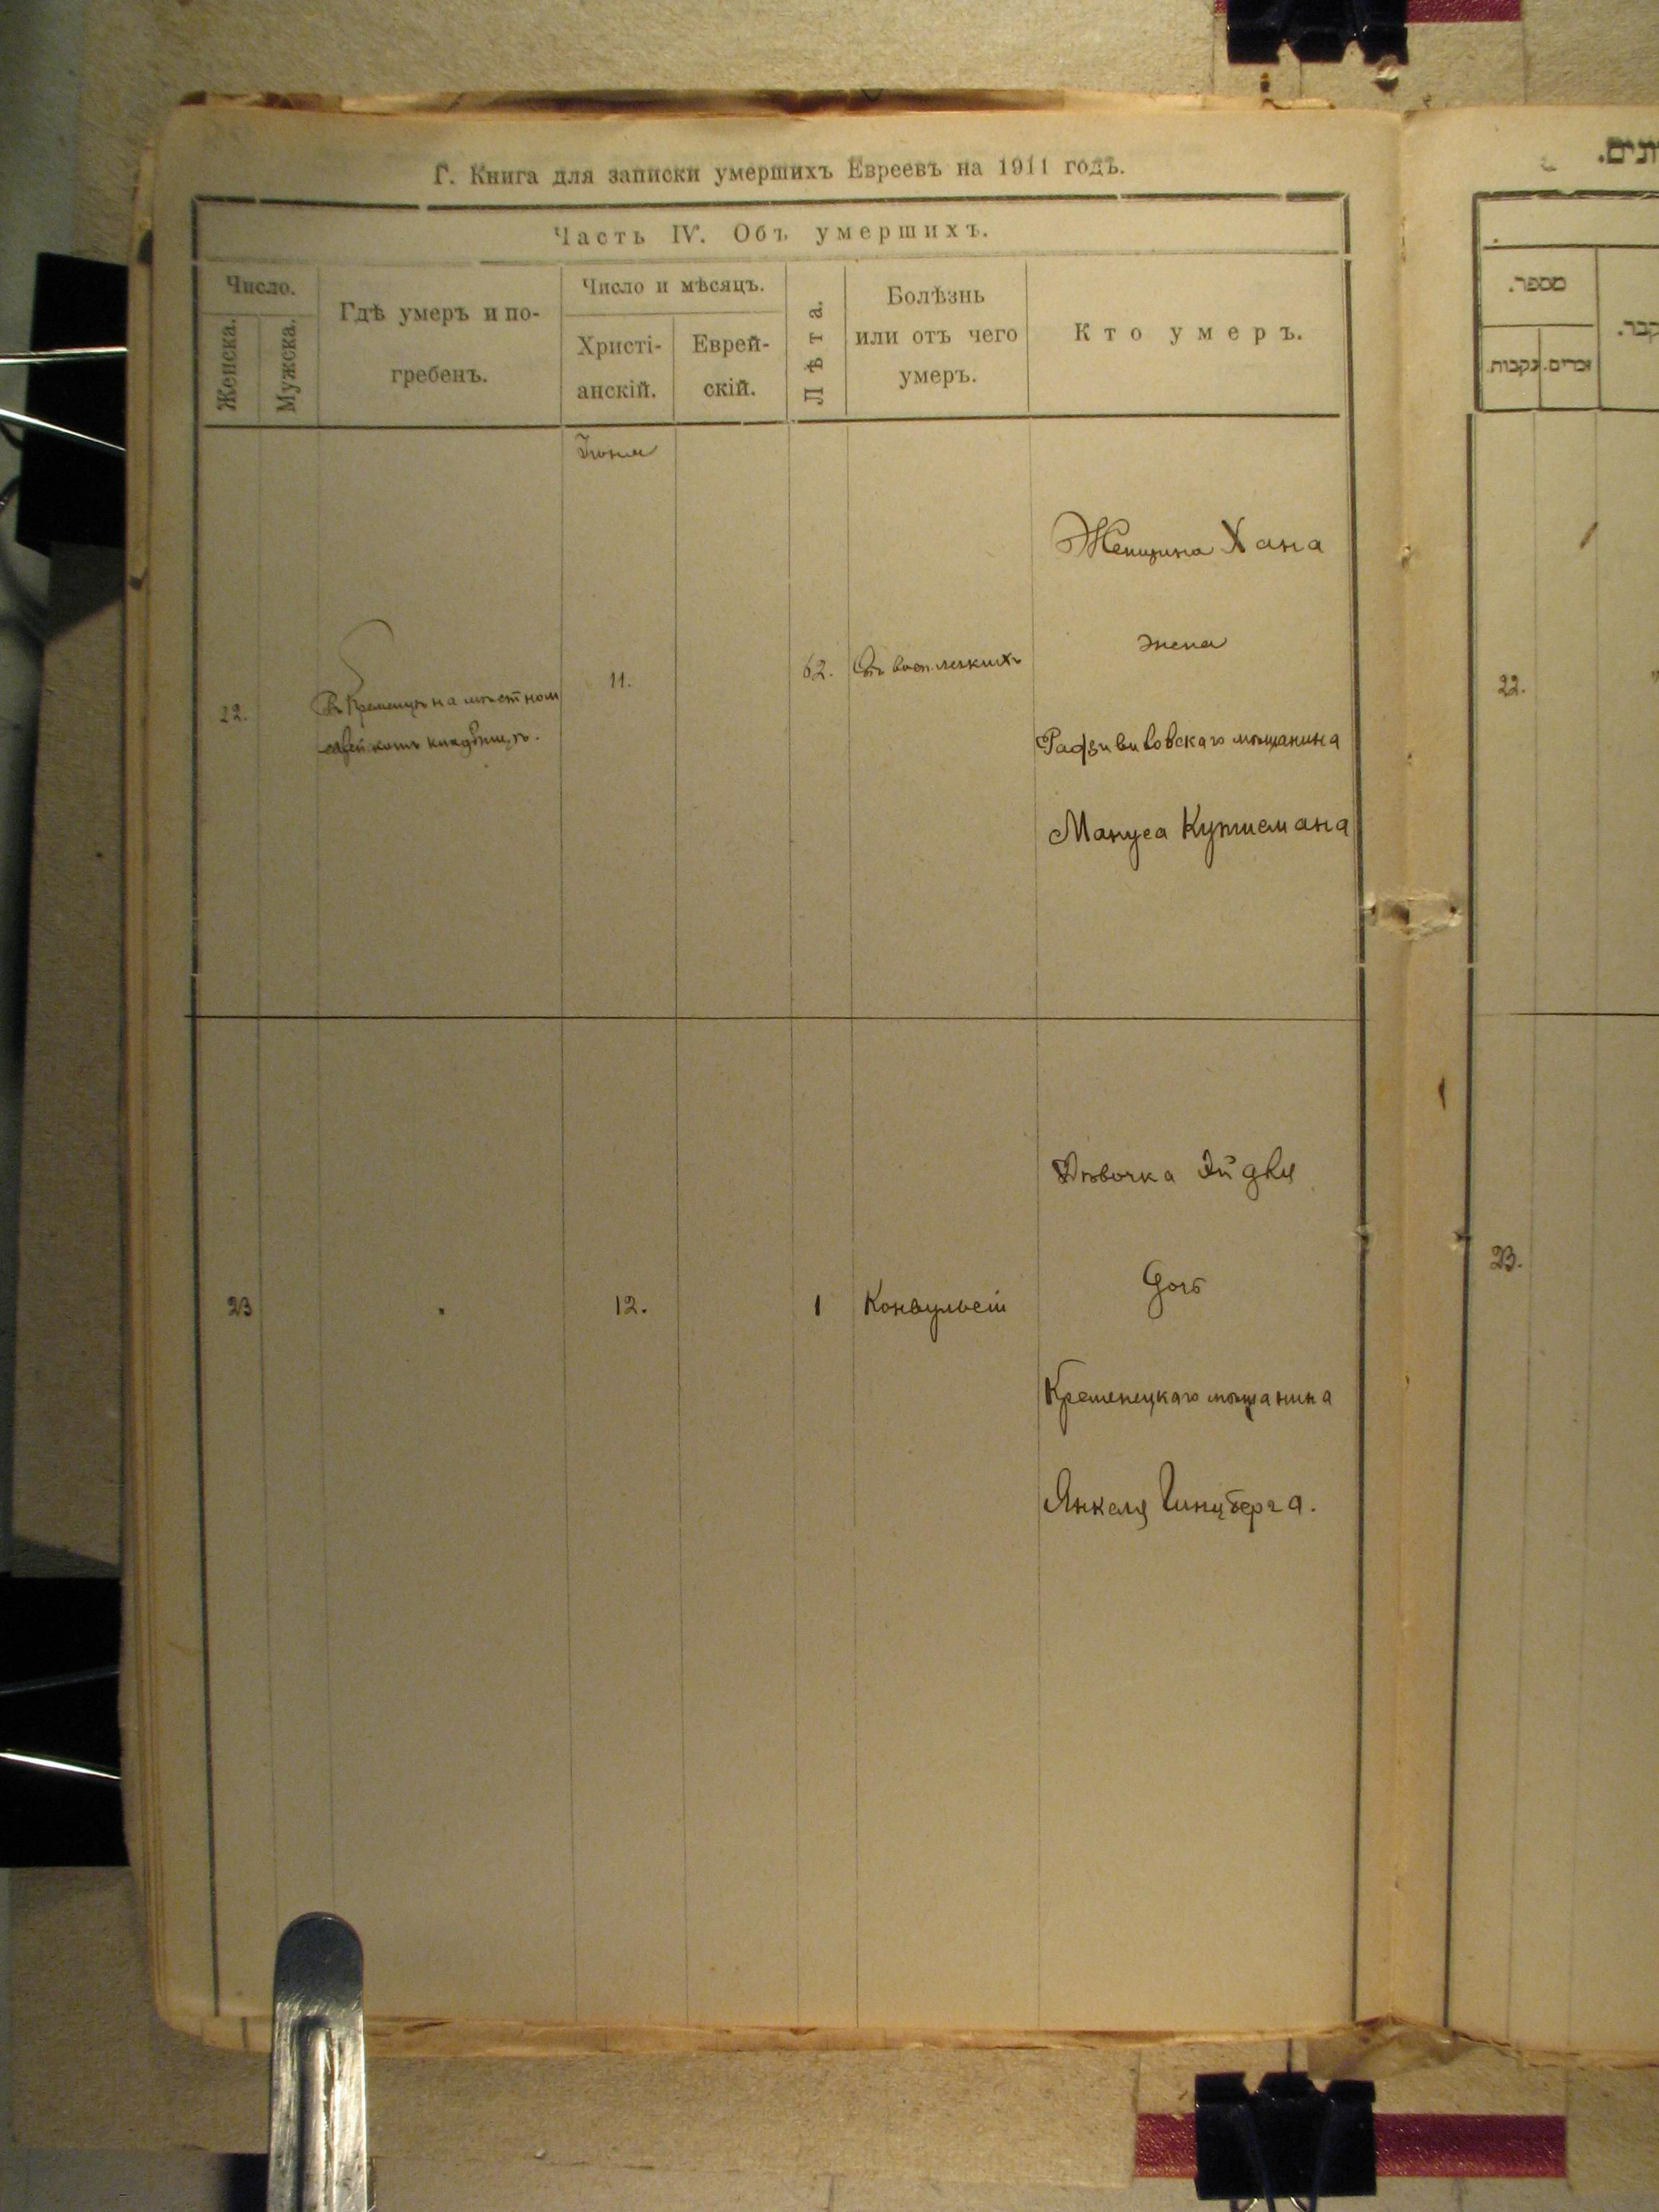 Г. Книга для записки умершихъ Евреевъ на 1911 годъ.
Часть IV. Объ умершихъ.
Число.
Женска.
Мужска.
Гдѣ умеръ и по-
гребенъ.
Число и мѣсяцъ.
Христі-
анскій.
Еврей-
скій.
Лѣта.
Болѣзнь
или отъ чего
умеръ.
Кто умеръ.
Іюня
Женщина Хана
жена
22.
Въ Кременцѣ на мѣстном
11.
62.
Отъ восп. легкихъ
Радзивиловскаго мѣщанина
Мануса
Дѣвочка Эйдля
дочь
23
"
12.
1
Конвульсій
Кременецкаго мѣщанина
Янкеля Гинцберга.
מספר.
זכרים.
נקבות.
22.
23.